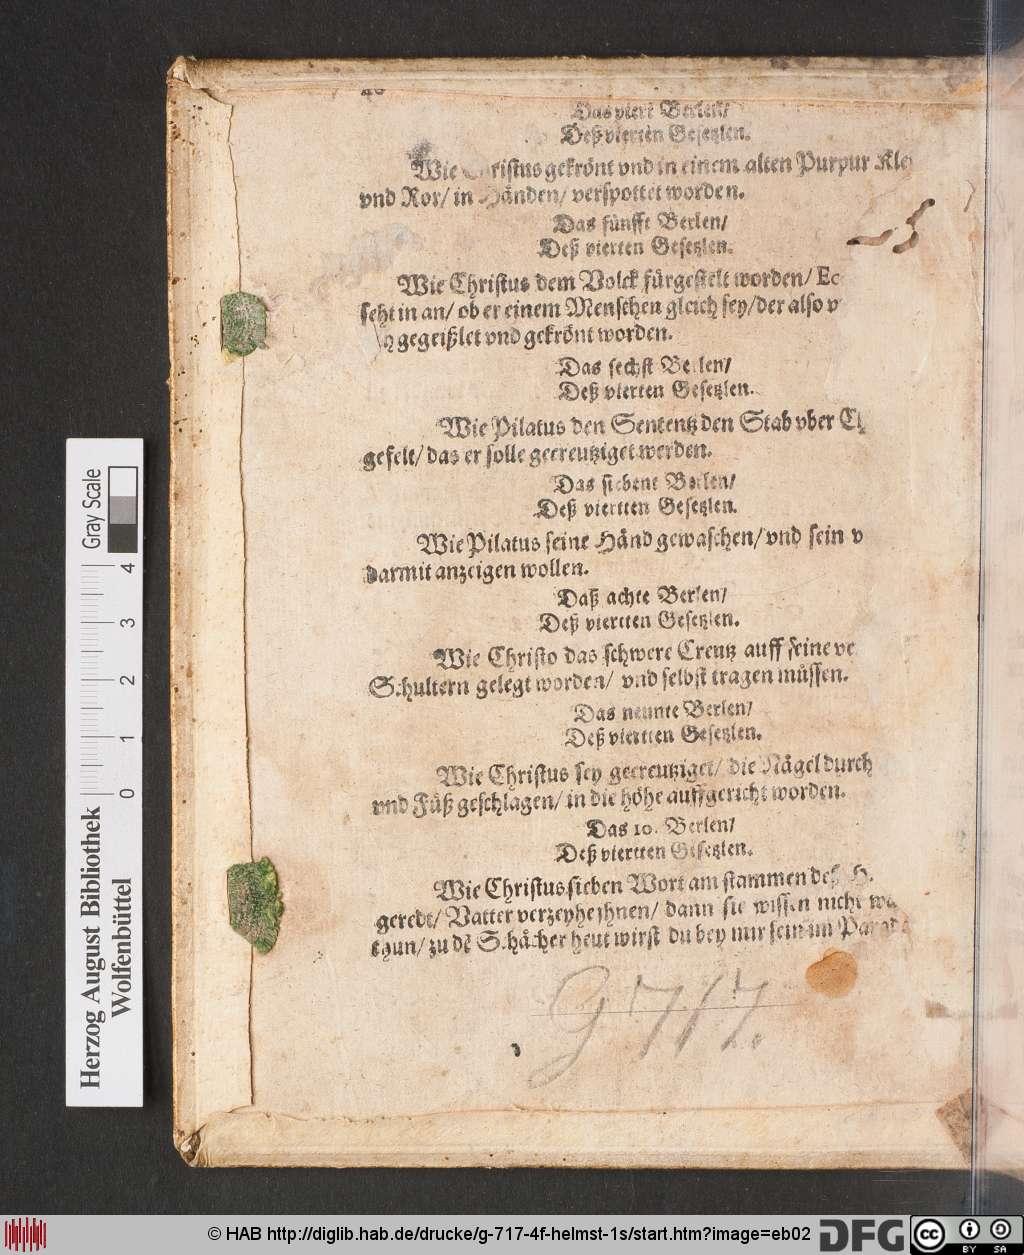 Das viert Berlen/
Deß vierten Gesetzlen.
Wie Christus gekrönt vnd in einem alten Purpur Kle
vnd Ror/ in Händen/ verspottet worden.
Das fünfft Berlen/
Deß vierten Gesetzlen.
Wie Christus dem Volck fürgestelt worden/ Ec
seht in an/ ob er einem Menschen gleich sey/ der also v
gegeißlet vnd gekrönt worden.
Das sechst Berlen/
Deß vierten Gesetzlen.
Wie Pilatus den Sententz den Stab vber C
gefelt/ das er solle gecreutziget werden.
Das siebent Berlen/
Deß viertten Gesetzlen.
Wie Pilatus seine Händ gewaschen/ vnd sein v
darmit anzeigen wollen.
Daß achte Berlen/
Deß viertten Gesetzlen.
Wie Christo das schwere Creutz auff seine ve
Schultern gelegt worden/ vnd selbst tragen müssen.
Das neunte Berlen/
Deß viertten Gesetzlen.
Wie Christus sey gecreutziget/ die Nägel durch
vnd Füß geschlagen/ in die höhe auffgericht worden.
Das 10. Berlen/
Deß viertten Gesetzlen.
Wie Christus sieben Wort am stammen deß H.
geredt/ Vatter verzeyhe jhnen/ dann sie wissen nicht wa
thun/ zu dē Schächer heut wirst du bey mir sein im Parad
G 717.
Gray Scale
4 3 2 1 0
Herzog August Bibliothek
Wolfenbüttel
© HAB http://diglib.hab.de/drucke/g-717-4f-helmst-1s/start.htm?image=eb02
DFG
cc BY SA